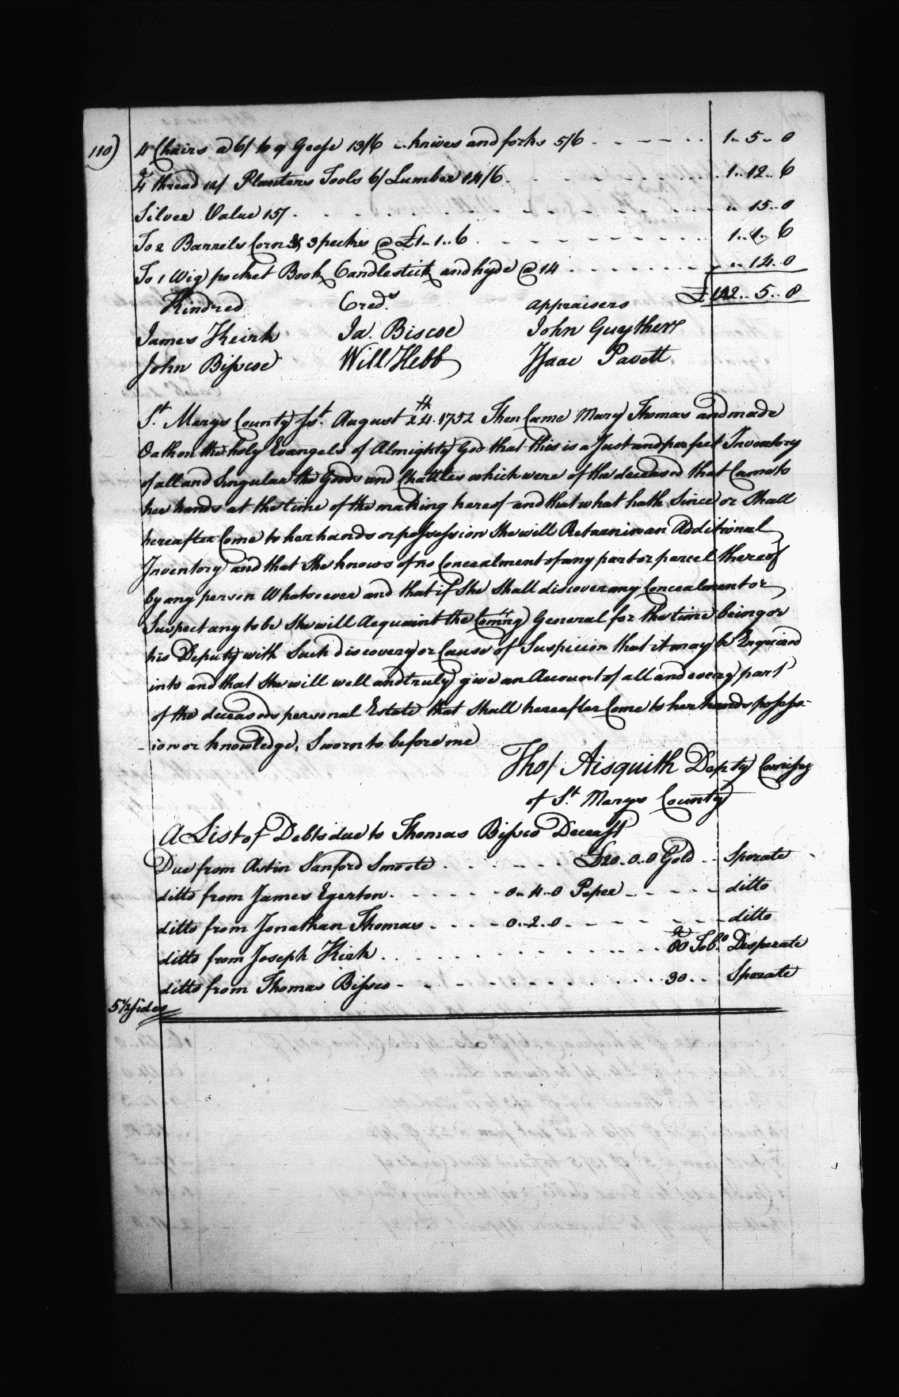 110) 4 Chairs a 6/ 6 of Geese 13/6 knives and forks 5/6 1.. 5.. 0
4 thread 12/ Planters Tools 6/ Lumber 14/6 1.. 12.. 6
Silver Value 15/ .. 15.. 0
To 2 Barrels Corn & 3 pecks @ £1.. 1.. 6 1.. 1.. 6
To 1 Wig pocket Book Candlestick and hyde @ 14 .. 14.. 0
£ 122.. 5.. 8
Kindred Credrs appraisers
James Keirk Ja. Biscoe John Guyther
John Bisscoe Will Hebb Isaac Pavett
St. Marys County Sst. August 24th 1752 Then Came Mary Thomas and made
Oath on the holy Evangels of Almighty God that this is a Just and perfect Inventory
of all and Singular the Goods and Chattles which were of the deceased that Came to
her hands at the time of the making hereof and that what hath Since or Shall
hereafter Come to her hands or possession She will Return in an Additional
Inventory and that She knows of no Concealment of any part or parcel thereof
by any person Whatsoever and that if She Shall discover any Concealment or
Suspect any to be She will Acquaint the Comry General for the time being or
his Deputy with Such discovery or Cause of Suspicion that it may be Enquired
into and that She will well and truly give an Account of all and every part
of the deceaseds personal Estate that Shall hereafter Come to her hands possess-
-ion or knowledge. Sworn to before me
Thos Aisquith Depty Comisry
of St Marys County
A List of Debts due to Thomas Bissco Deceast
Due from Astin Sanford Smoote £20.. 0.. 0 Gold Sperate
ditto from James Egerton 0.. 4.. 0 Paper ditto
ditto from Jonathan Thomas 0.. 2.. 0 ditto
ditto from Joseph Kirk 80 Tobo Desperate
ditto from Thomas Bissco 30 Sperate
5½ sides